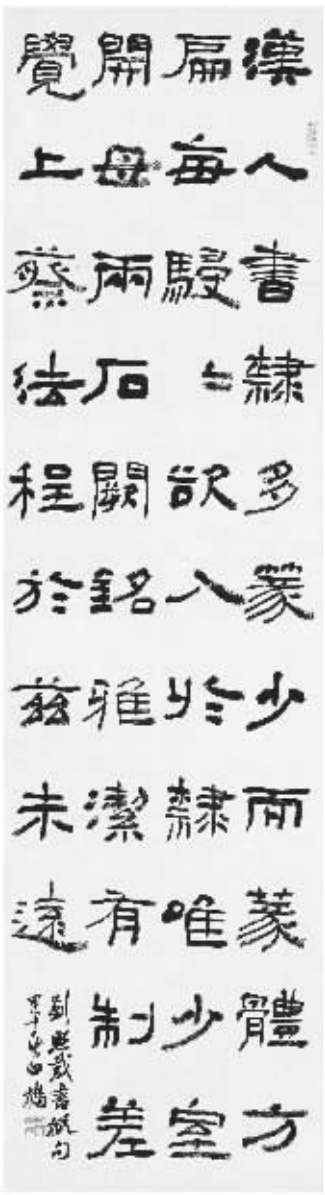 漢人書隸多篆少而篆體方
扁每駸〻欲入於隸唯少室
開母兩石闕銘雅潔有制差
覺上蔡法程於茲未遠
劉熙載書概句